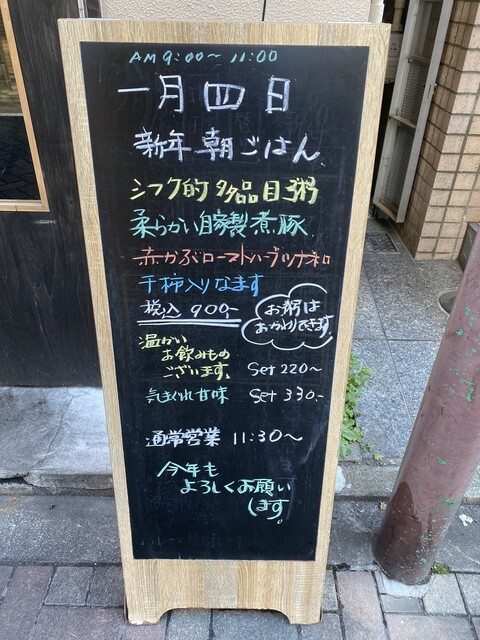 AM 9:00～11:00
一月四日
新年朝ごはん、
シフク的 多品目粥
柔らかい自家製煮豚、
赤かぶローストハーブツナ和
干柿入りなます
税込 900-
お粥は
おかわりできます。
温かい
お飲みもの
ございます。 Set 220～
気まぐれ甘味 Set 330.-
通常営業 11:30～
今年も
よろしくお願い
します。